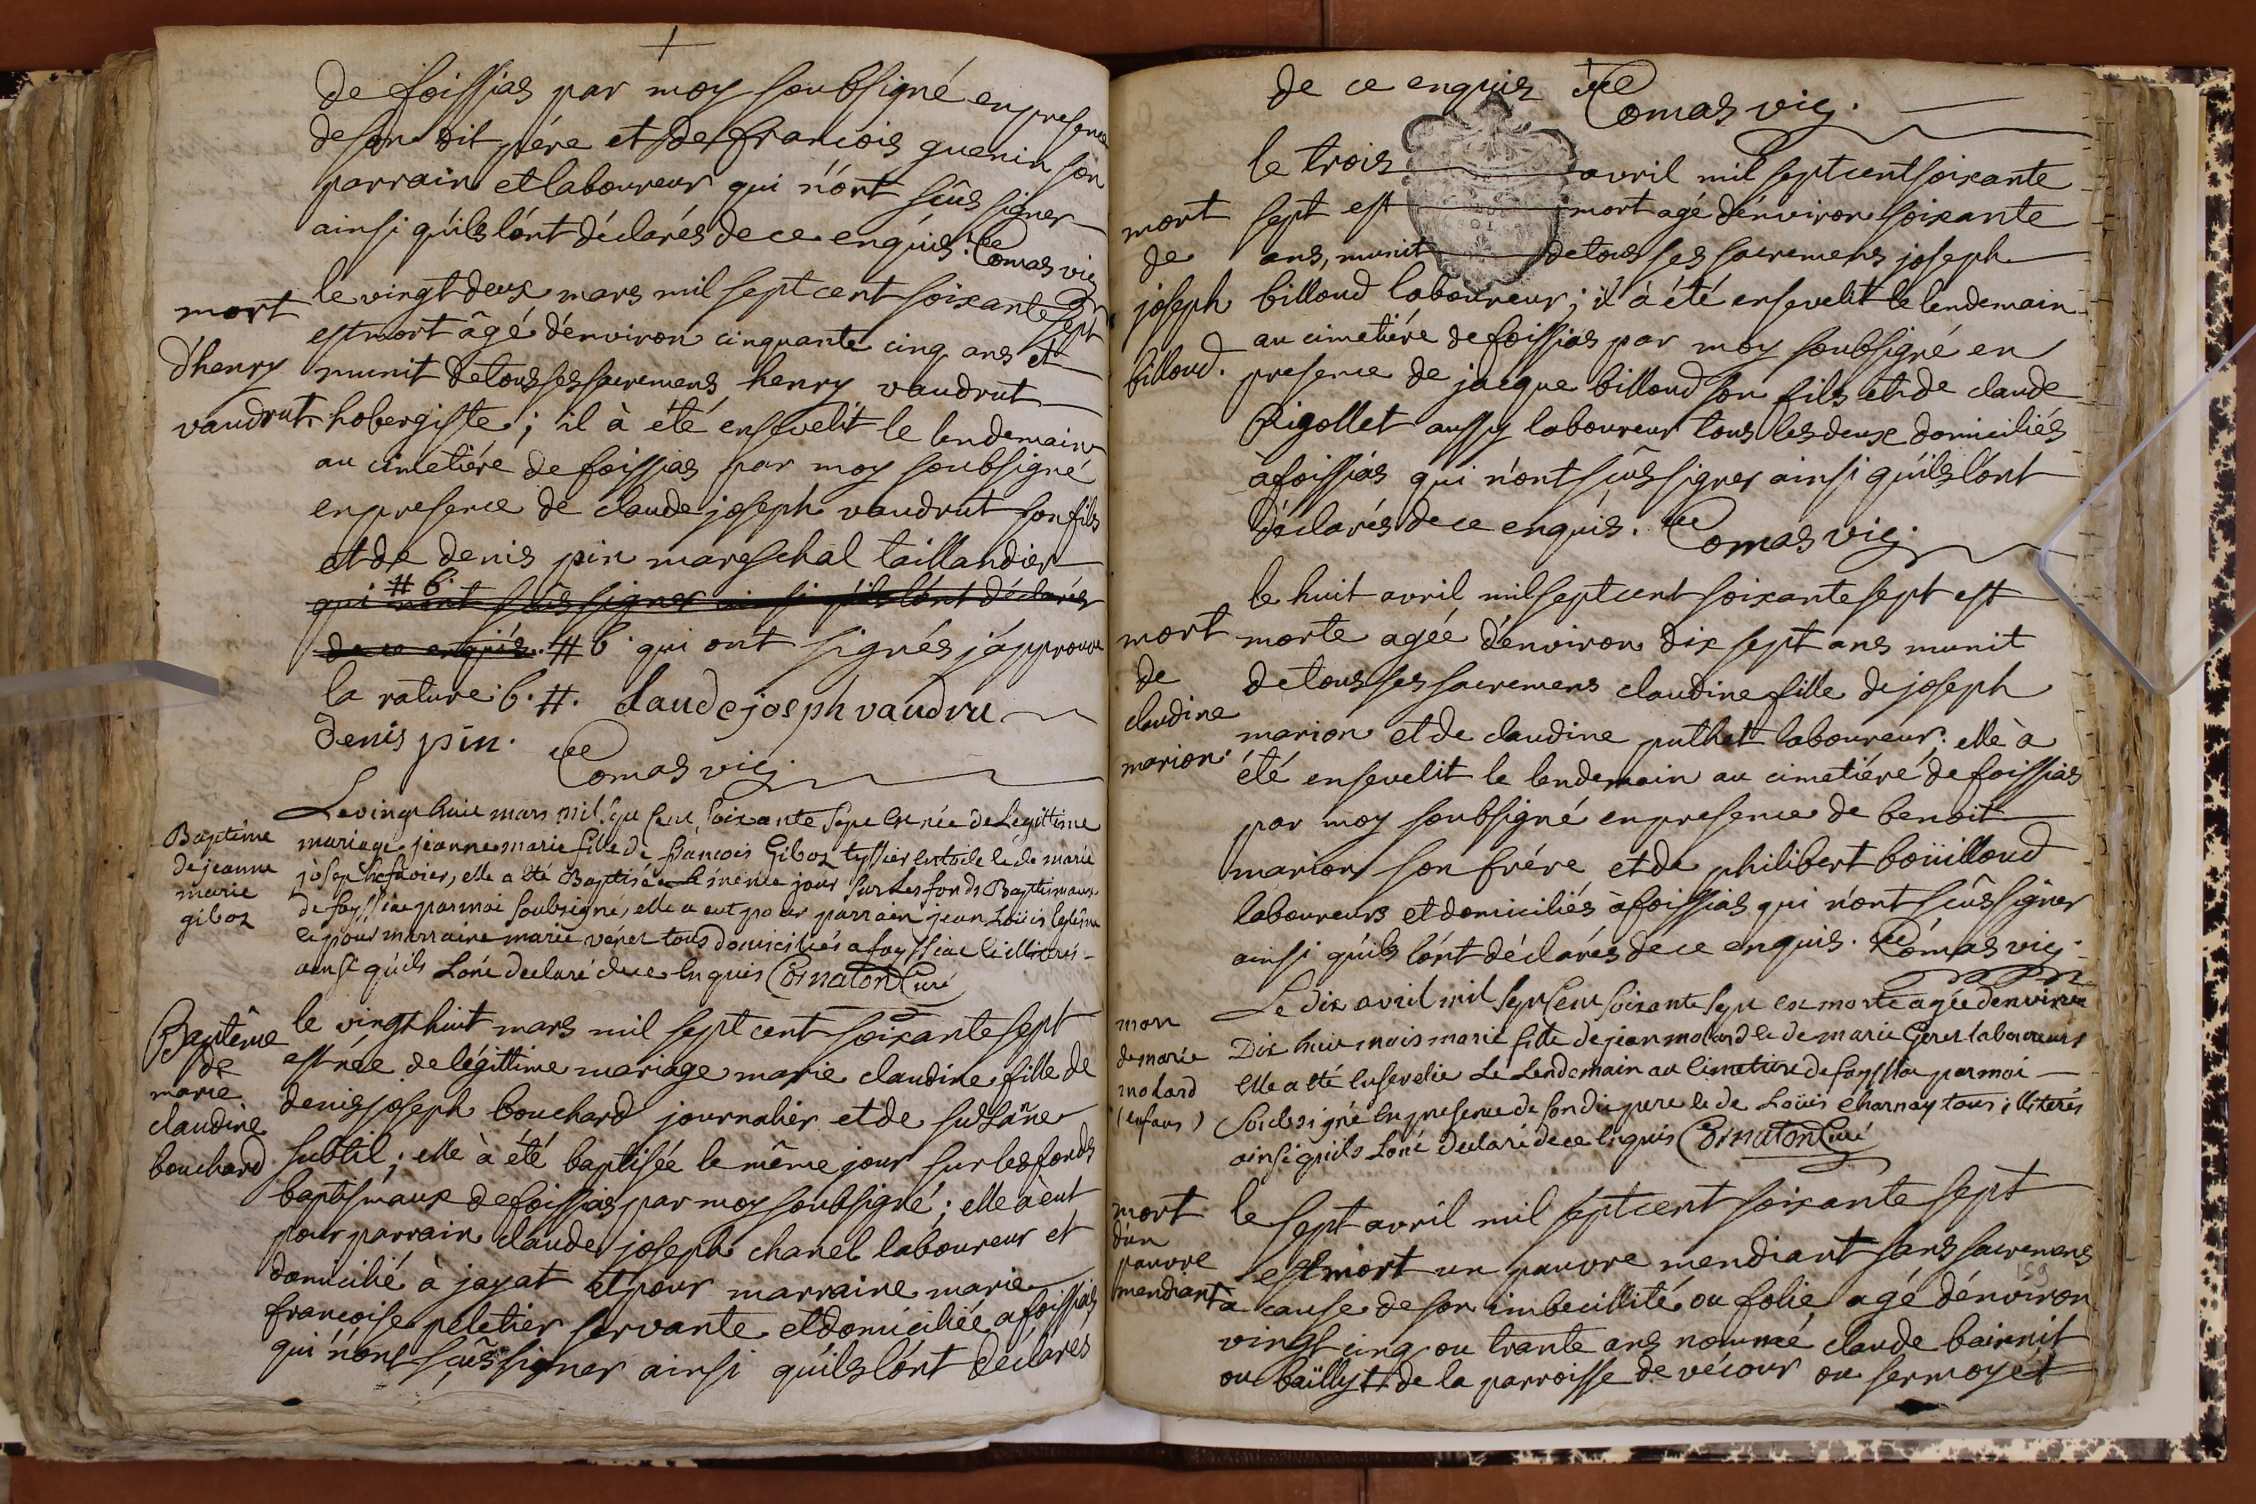 de foissias par moy soubsigné en presence
de son dit pére et de francois guenin son
parrain et laboureur qui n'ónt sçûs signer
ainsi qu'ils lónt déclarés de ce enquis. Comas vic
mort
d'henry
vaudrut
le vingt deux mars mil sept cent soixante sept
est mort âgé d'énviron cinquante cinq ans et
munit de tous ses sacremens henry vaudrut
hobergiste; il à été ensevelit le lendemain
au cimetiére de foissias par moy soubsigné
en presence de claude joseph vaudrut son fils
et de denis pin mareschal taillandier
qui # 6. n'ont sçûs signer ainsi qu'ils lónt déclarés
de ce enquis. # 6. qui ont signés j'approuve
la rature. 6. #. claude joseph vaudru
denis pin.
Comas vic.
Baptême
de jeanne
marie
giboz
Le vingt huit mars mil sept Cent soixante sept Est née de Legittime
mariage jeanne marie fille de francois Giboz tyssier en toile et de marie
josephe favier, elle a été Baptisée Le même jour sur Les fonds Baptismaux
de foyssiac par moi soubsigné, elle a eut pour parrain jean Loüis
et pour marraine marie véret tous domiciliés a foyssiac et illiterés
ainsi qu'ils Lont declaré de ce Enquis Cornaton Curé
Baptême
de
marie
claudine
bouchard
le vingt huit mars mil sept cent soixante sept
est née de légittime mariage marie claudine fille de
denis joseph bouchard journalier et de suzanne
subtil; elle à été baptisée le même jour sur les fonds
baptismaux de foissias par moy soubsigné; elle à eut
pour parrain claude joseph chanel laboureur et
domicilié à jayat et pour marraine marie
francoise peletier servante et domiciliée a foissias
qui n'ónt sçûs signer ainsi qu'ils lónt déclarés
de ce enquis Comas vic.
mort
de
joseph
billoud.
le trois avril mil sept cent soixante
sept est mort agé d'énviron soixante
ans, munit de tous ses sacremens joseph
billoud laboureur; il à été ensevelit le lendemain
au cimetiére de foissias par moy soubsigné en
presence de jacque billoud son fils et de claude
Rigollet aussy laboureur tous les deux domiciliés
à foissias qui n'ont sçûs signer ainsi qu'ils lónt
déclarés de ce enquis. Comas vic.
mort
de
claudine
marion.
le huit avril mil sept cent soixante sept est
morte agée d'énviron dix sept ans munit
de tous ses sacremens claudine fille de joseph
marion et de claudine puthet laboureur; elle à
été ensevelit le lendemain au cimetiére de foissias
par moy soubsigné en presence de benoit
marion son frére et de philibert boüilloud
laboureurs et domiciliés à foissias qui n'ónt sçûs signer
ainsi qu'ils lónt déclarés de ce enquis. Comas vic.
mort
de marie
molard
(enfans)
Le dix avril mil sept Cent soixante sept Est morte agée d'environ
Dix huit mois marie fille de jean molard et de marie Geret laboureurs
elle a été Ensevelie Le Lendemain au Cimetiere de foyssia par moi
Soubsigné En presence de son dit pere et de Loüis Charnay tous illiterés
ainsi qu'ils Lont Declaré de ce Enquis Cornaton Curé
mort
d'un
pauvre
mendiant
le sept avril mil sept cent soixante sept
est mort un pauvre mendiant sans sacremens
à cause de son imbecillité ou folie agé d'énviron
159
vingt cinq ou trante ans nommé claude bainnit
ou baïlly de la parroisse de vécour ou sermoyét